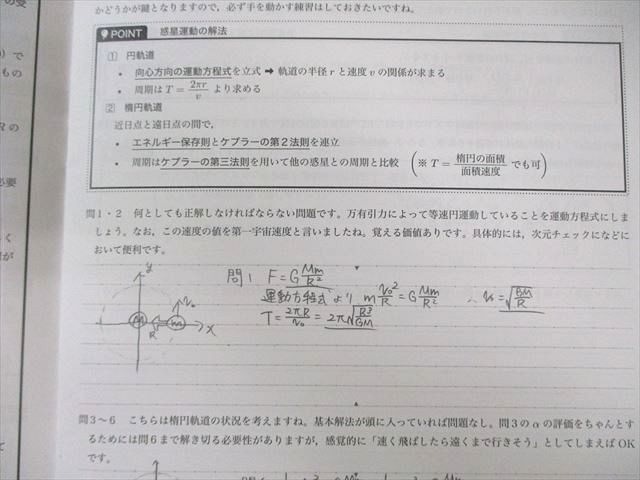 かどうかが鍵となりますので,必ず手を動かす練習はしておきたいですね。
POINT 惑星運動の解法
1 円軌道
・ 向心方向の運動方程式を立式 ➡ 軌道の半径 r と速度 v の関係が求まる
・ 周期は T = 2πr/v より求める
2 楕円軌道
近日点と遠日点の間で,
・ エネルギー保存則とケプラーの第2法則を連立
・ 周期はケプラーの第三法則を用いて他の惑星との周期と比較 (※ T = 楕円の面積/面積速度 でも可)
問1・2 何としても正解しなければならない問題です。万有引力によって等速円運動していることを運動方程式にしま
しょう。なお,この速度の値を第一宇宙速度と言いましたね。覚える価値ありです。具体的には,次元チェックになどに
おいて便利です。
問1 F = G Mm/R²
運動方程式より m v₀²/R = G Mm/R² ∴ v₀ = √(GM/R)
T = 2πR/v₀ = 2π√(R³/GM)
y
v₀
M
m
R
x
問3〜6 こちらは楕円軌道の状況を考えますね。基本解法が頭に入っていれば問題なし。問3の α の評価をちゃんとす
るためには問6まで解き切る必要性がありますが,感覚的に「速く飛ばしたら遠くまで行きそう」としてしまえば OK
です。